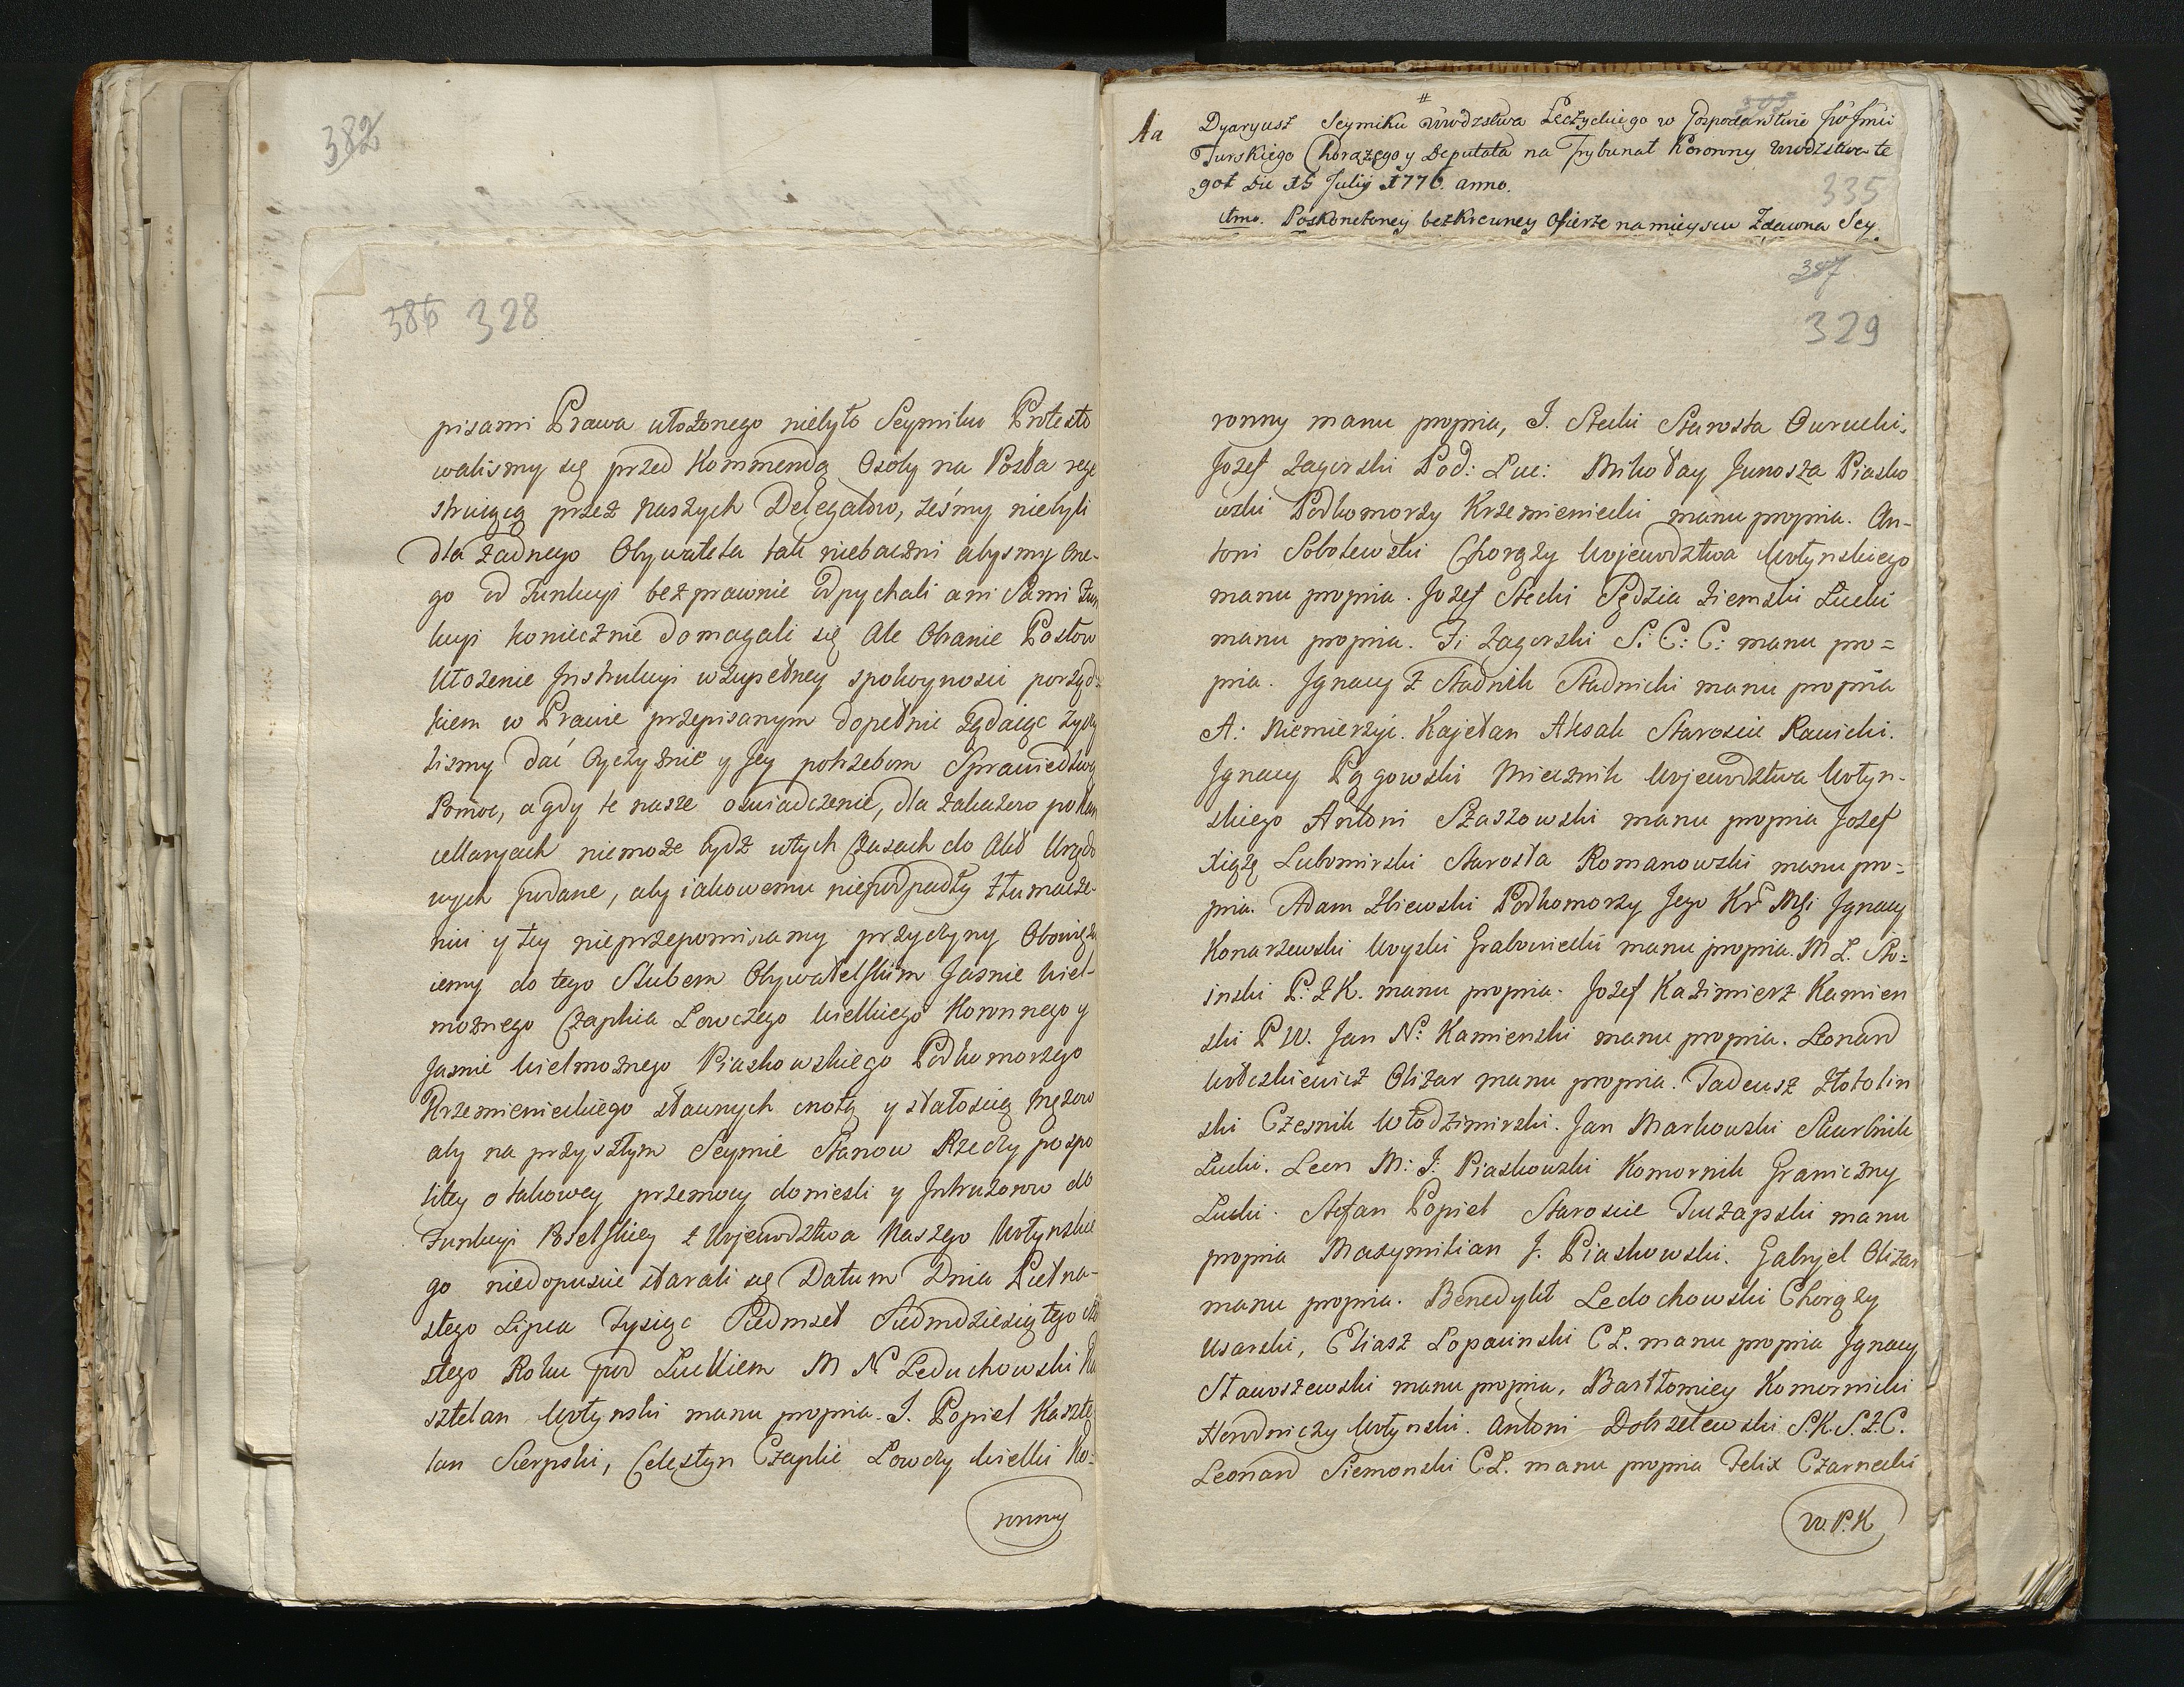 382
386 328
pisami Prawa ułożonego niebyło Seymiku Protesto
walismy się przed Kommendą Osoby na Posła reye
struiącą przez naszych Delegatow, żeśmy niebyli
dla żadnego Obywatela tak niebaczni abysmy One-
go od Funkcyi bezprawnie Odpychali ani Sami Fun
kcyi koniecznie domagali się Ale Obranie Posłow
Ułożenie Instrukcyi wzupełney spokoynosci porząd=
kiem w Prawie przepisanym dopełnić żądaiąc życzy
lismy dać Oyczyznie y Jey potrzebom Sprawiedliwą
Pomoc, a gdy te nasze oswiadczenie, dla zakazow po Kan
cellaryach niemoże bydź wtych Czasach do Akt Urzędo
wych podane, aby iakowemu niepodpadły tłumacze-
niu y tey nieprzepomniamy przyczyny Obowiązu
iemy do tego Slubem Obywatelskim Jasnie Wiel-
możnego Czaplica Łowczego Wielkiego Koronnego y
Jasnie Wielmożnego Piaskowskiego Podkomorzego
Krzemienieckiego sławnych cnotą y stałoscią Mężow
aby na przyszłym Seymie Stanow Rzeczy pospo
litey o takowey przemocy doniesli y Intruzorow do
Funkcyi Poselskiey z Wojewodztwa Naszego Wołynskie
go niedopuscic starali się Datum Dnia Pietna-
stego Lipca Tysiąc Siedmset Siedmdziesiątego Szo
stego Roku pod Łuckiem M N Leduchowski Ka
sztelan Wołynski manu propria. J. Popiel Kaszte
lan Sierpski, Celestyn Czaplic Łowczy Wielki Ko:
ronny
Aa Dyaryusz Seymiku Wwodztwa Łęczyckiego w Gospodarstwie
Turskiego Chorążego y Deputata na Trybunał Koronny Wwodztwa te
goż Die 15 Julij 1776. anno.
335
1mo. Poskonczoney bezkrewney Ofierze na mieyscu Zdawna Sey.
387
329
ronny manu propria, J. Stecki Starosta Owrucki,
Jozef Zagorski Pod: Łuc: Mikołay Junosza Piasko
wski Podkomorzy Krzemieniecki manu propria. An-
toni Sobolewski Chorąży Wojewodztwa Wołynskiego
manu propria. Jozef Stecki Sędzia Ziemski Łucki
manu propria. Fi Zagorski S: C: C: manu pro=
pria. Ignacy z Stadnik Stadnicki manu propria
A: Niemierzyc. Kajetan Aksak Staroscic Rawicki.
Ignacy Pągowski Miecznik Wojewodztwa Wołyn-
skiego Antoni Staszowski manu propria Jozef
Xiążę Lubomirski Starosta Romanowski manu pro=
pria. Adam Zbiewski Podkomorzy Jego Kr Mci Ignacy
Konarzewski Woyski Grabowiecki manu propria. M L. Sto=
inski P. Z K. manu propria. Jozef Kazimierz Kamien
ski P W. Jan N: Kamienski manu propria. Leonard
Wołczkiewicz Olizar manu propria. Tadeusz Złotolin
ski Czesnik Włodzimirski. Jan Markowski Skarbnik
Łucki. Leon M: J: Piaskowski Komornik Graniczny
Łucki. Stefan Popiel Staroscic Tuczapski manu
propria Maxymilian J. Piaskowski. Gabryel Olizar
manu propria. Benedykt Ledochowski Chorąży
Usarski, Eliasz Łopacinski C Ł. manu propria Ignacy
Stawoszewski manu propria, Bartłomiey Komornicki
Horodniczy Wołynski. Antoni Dobrzelewski S. K. S. Z. C.
Leonard Siemonski C Ł. manu propria Felix Czarnecki
W. P. K